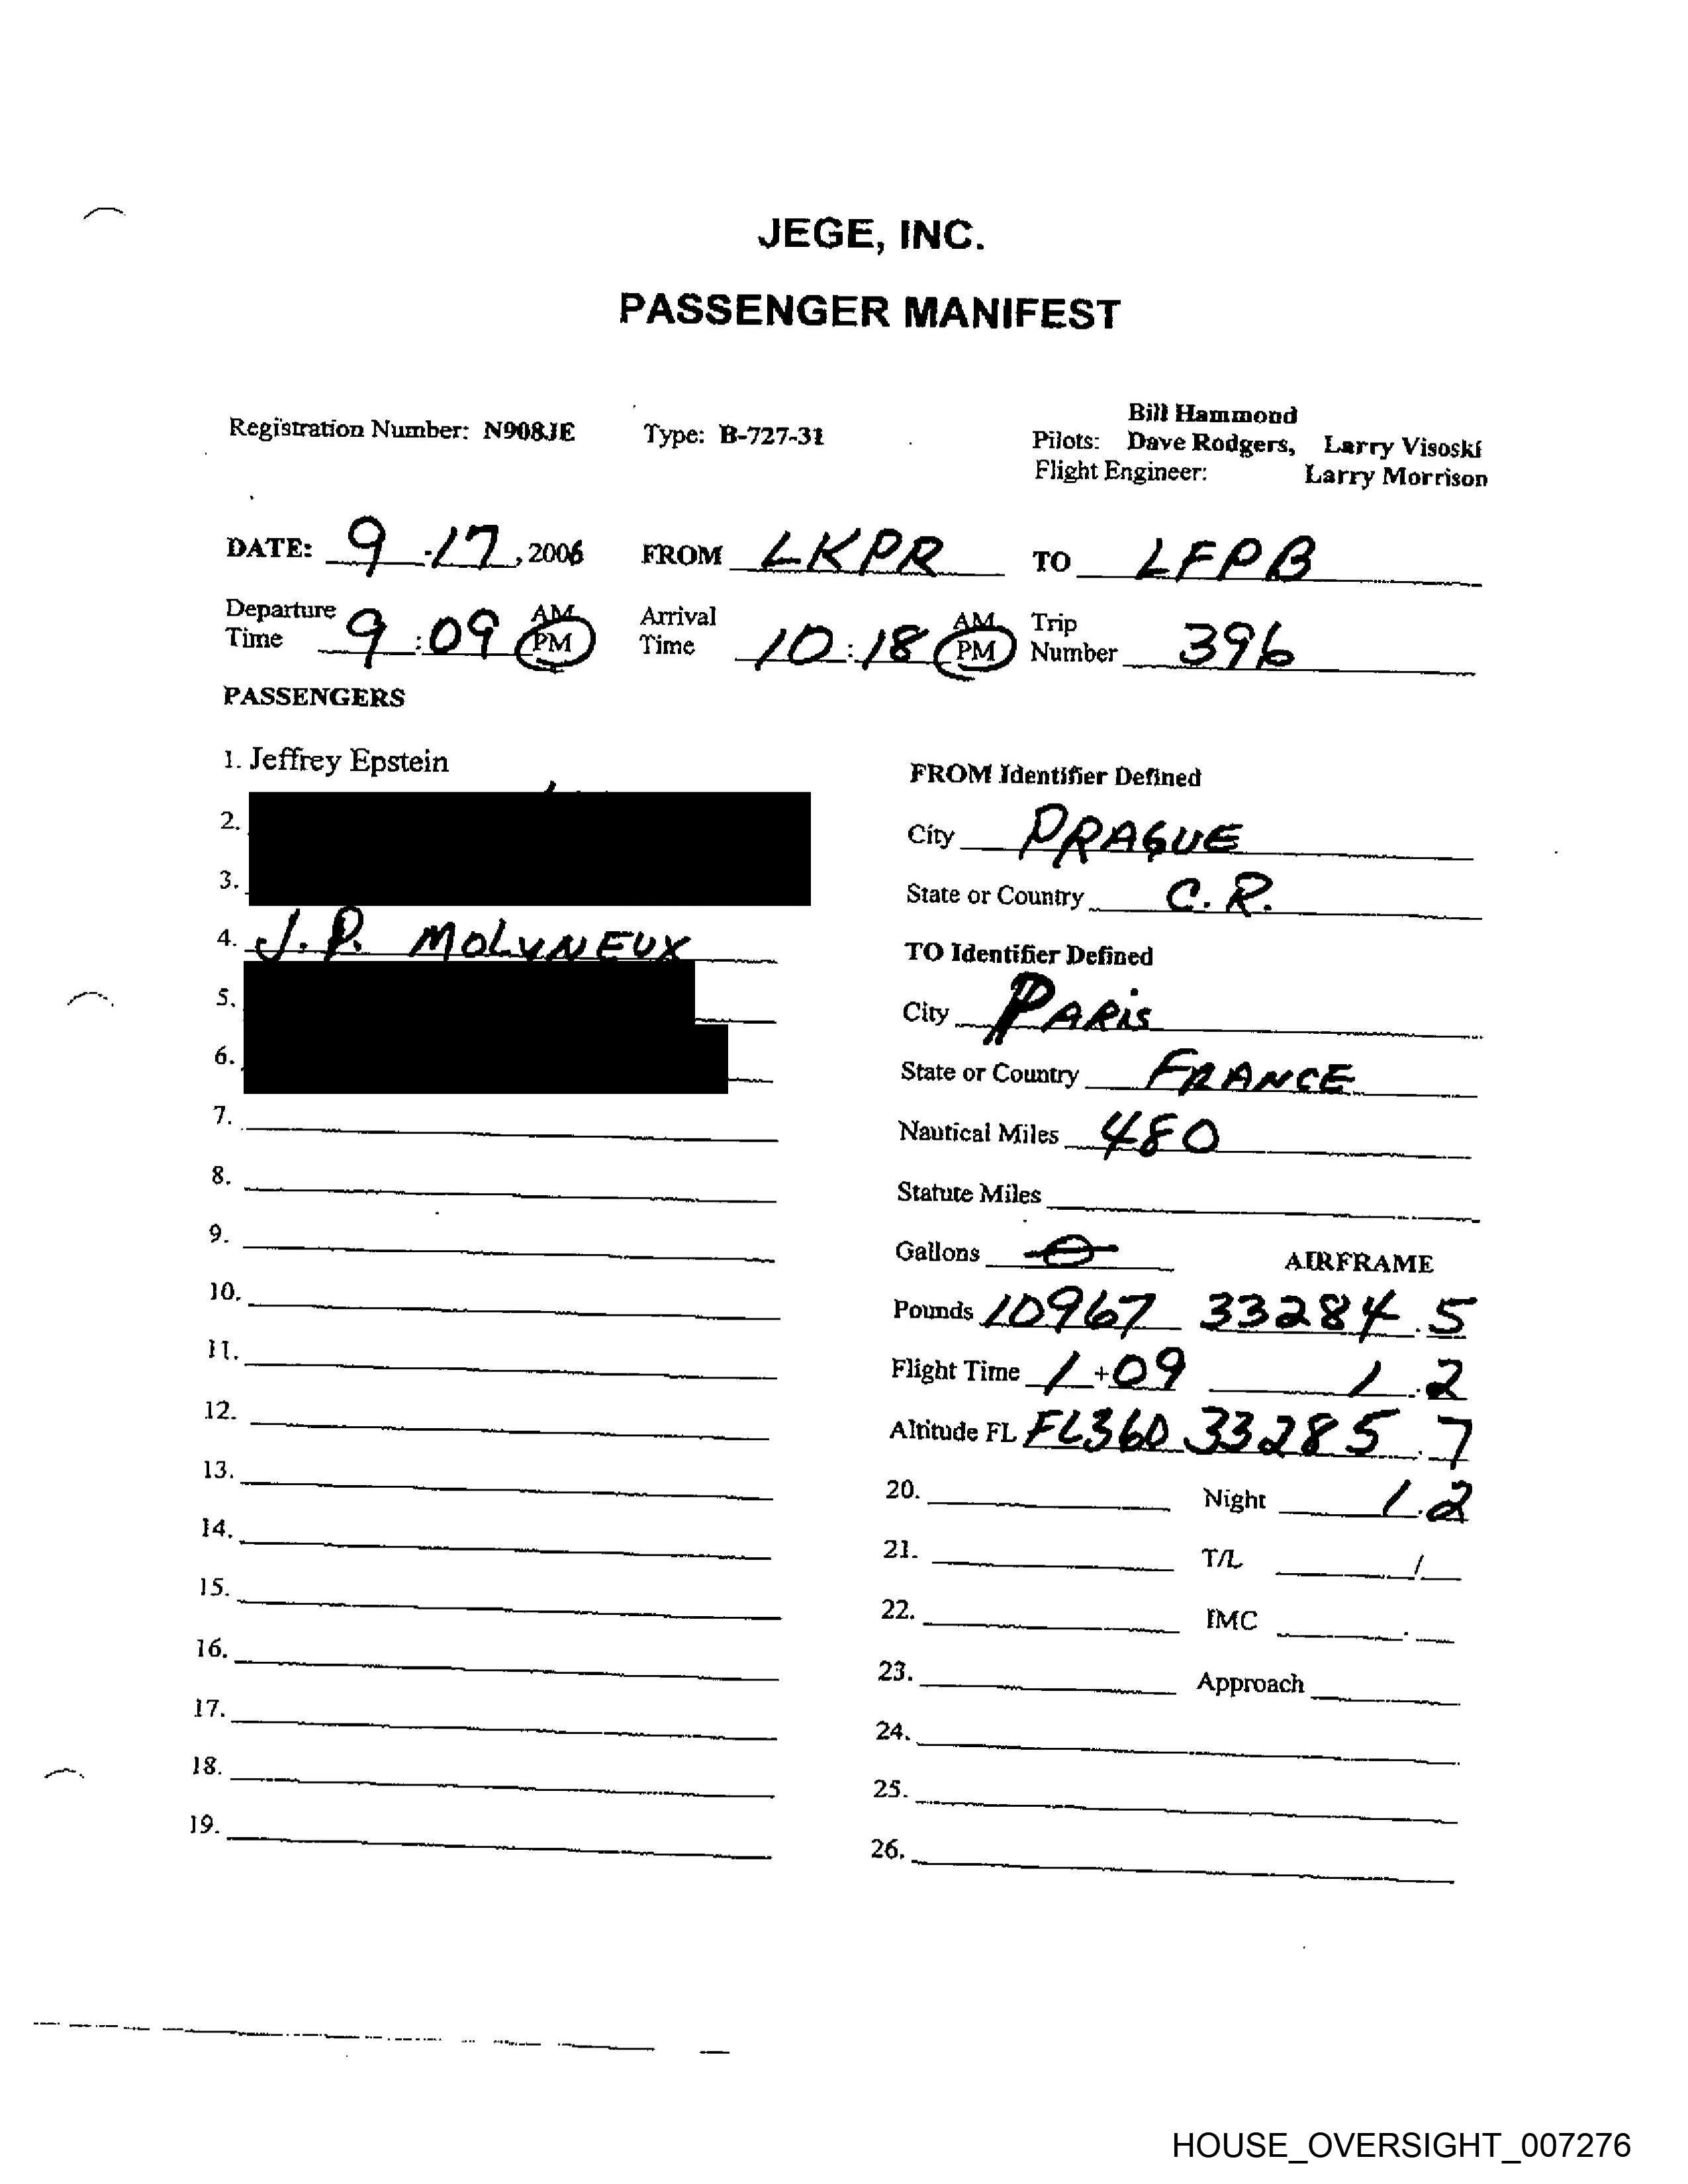 JEGE, INC.
PASSENGER MANIFEST
Registration Number: N908JE
Type: B-727-31
Bill Hammond
Pilots: Dave Rodgers, Larry Visoski
Flight Engineer: Larry Morrison
DATE: 9-17, 2006 FROM LKPR TO LFPB
Departure Time 9:09 AM PM Arrival Time 10:18 AM PM Trip Number 396
PASSENGERS
1. Jeffrey Epstein
2.
3.
4. J.P. MOLYNEUX
5.
6.
7.
8.
9.
10.
11.
12.
13.
14.
15.
16.
17.
18.
19.
FROM Identifier Defined
City PRAGUE
State or Country C.R.
TO Identifier Defined
City PARIS
State or Country FRANCE
Nautical Miles 480
Statute Miles
Gallons 0 AIRFRAME
Pounds 10967 33284.5
Flight Time 1+09 1.2
Altitude FL FL360 33285.7
20. Night 1.2
21. T/L /
22. IMC .
23. Approach
24.
25.
26.
HOUSE_OVERSIGHT_007276